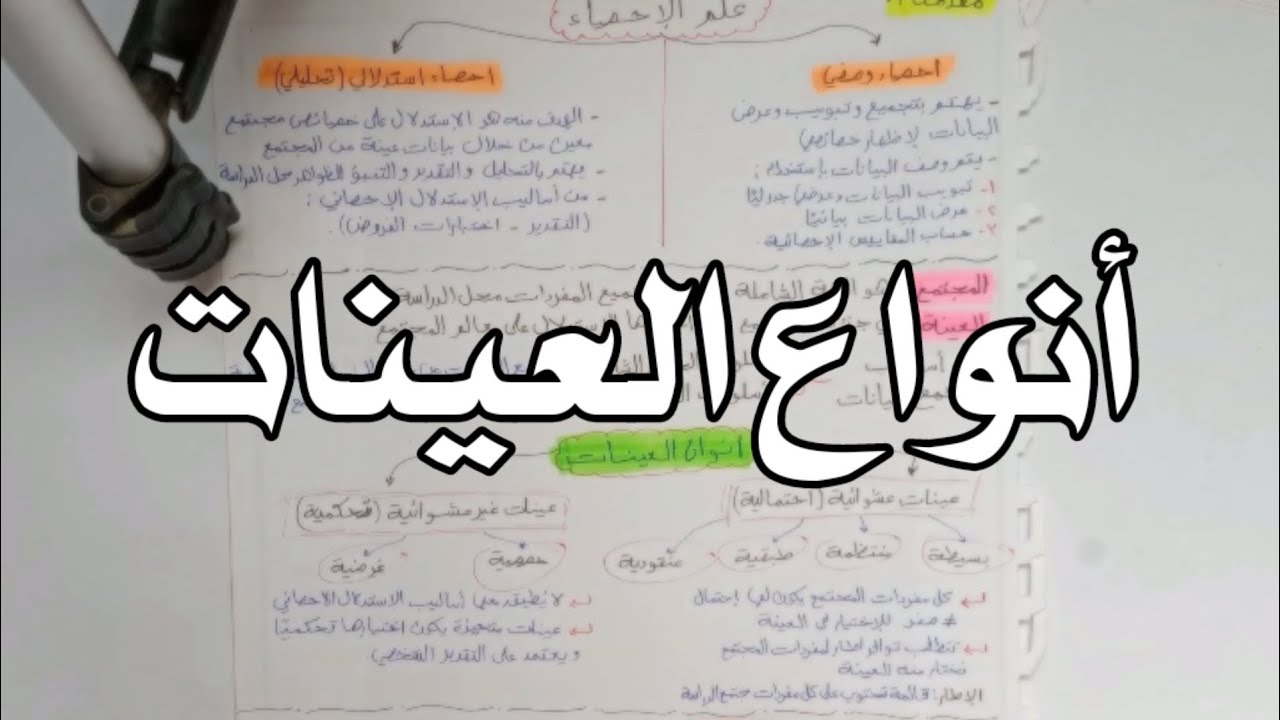 مقدمة
علم الإحصاء
احصاء وصفي
- يهتم بتجميع وتبويب وعرض
البيانات لإظهار خصائصها
- يتم وصف البيانات بإستخدام:
١- تبويب البيانات وعرضها جدوليًا
٢- عرض البيانات بيانيًا
٣- حساب المقاييس الإحصائية.
احصاء استدلالي (تحليلي)
- الهدف منه هو الإستدلال على خصائص مجتمع
معين من خلال بيانات عينة من المجتمع
- يهتم بالتحليل والتقدير والتنبؤ للظواهر محل الدراسة
- من أساليب الإستدلال الإحصائي:
(التقدير - اختبارات الفروض).
أنواع العينات
المجتمع الشاملة جميع المفردات محل الدراسة
العينة الإستدلال على معالم المجتمع
انواع العينات
عينات عشوائية (احتمالية)
بسيطة
منتظمة
طبقية
عنقودية
كل مفردات المجتمع يكون لها إحتمال
≠ صفر للإختيار في العينة
تتطلب توافر اطار لمفردات المجتمع
نختار منه العينة
الإطار: قائمة تحتوي على كل مفردات مجتمع الدراسة
عينات غير عشوائية (تحكمية)
حصصية
غرضية
لا يُطبق عليها أساليب الاستدلال الاحصائي
عينات متحيزة يكون اختيارها تحكميًا
ويعتمد على التقدير الشخصي.